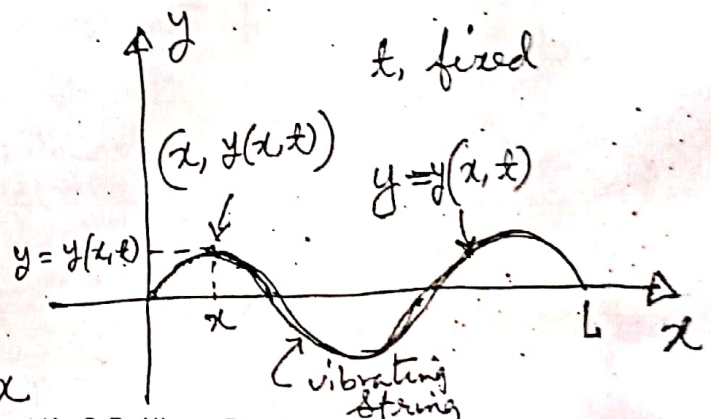 y
t, fixed
(x, y(x,t))
y=y(x,t)
y = y(x,t)
x
L
x
vibrating
string
x